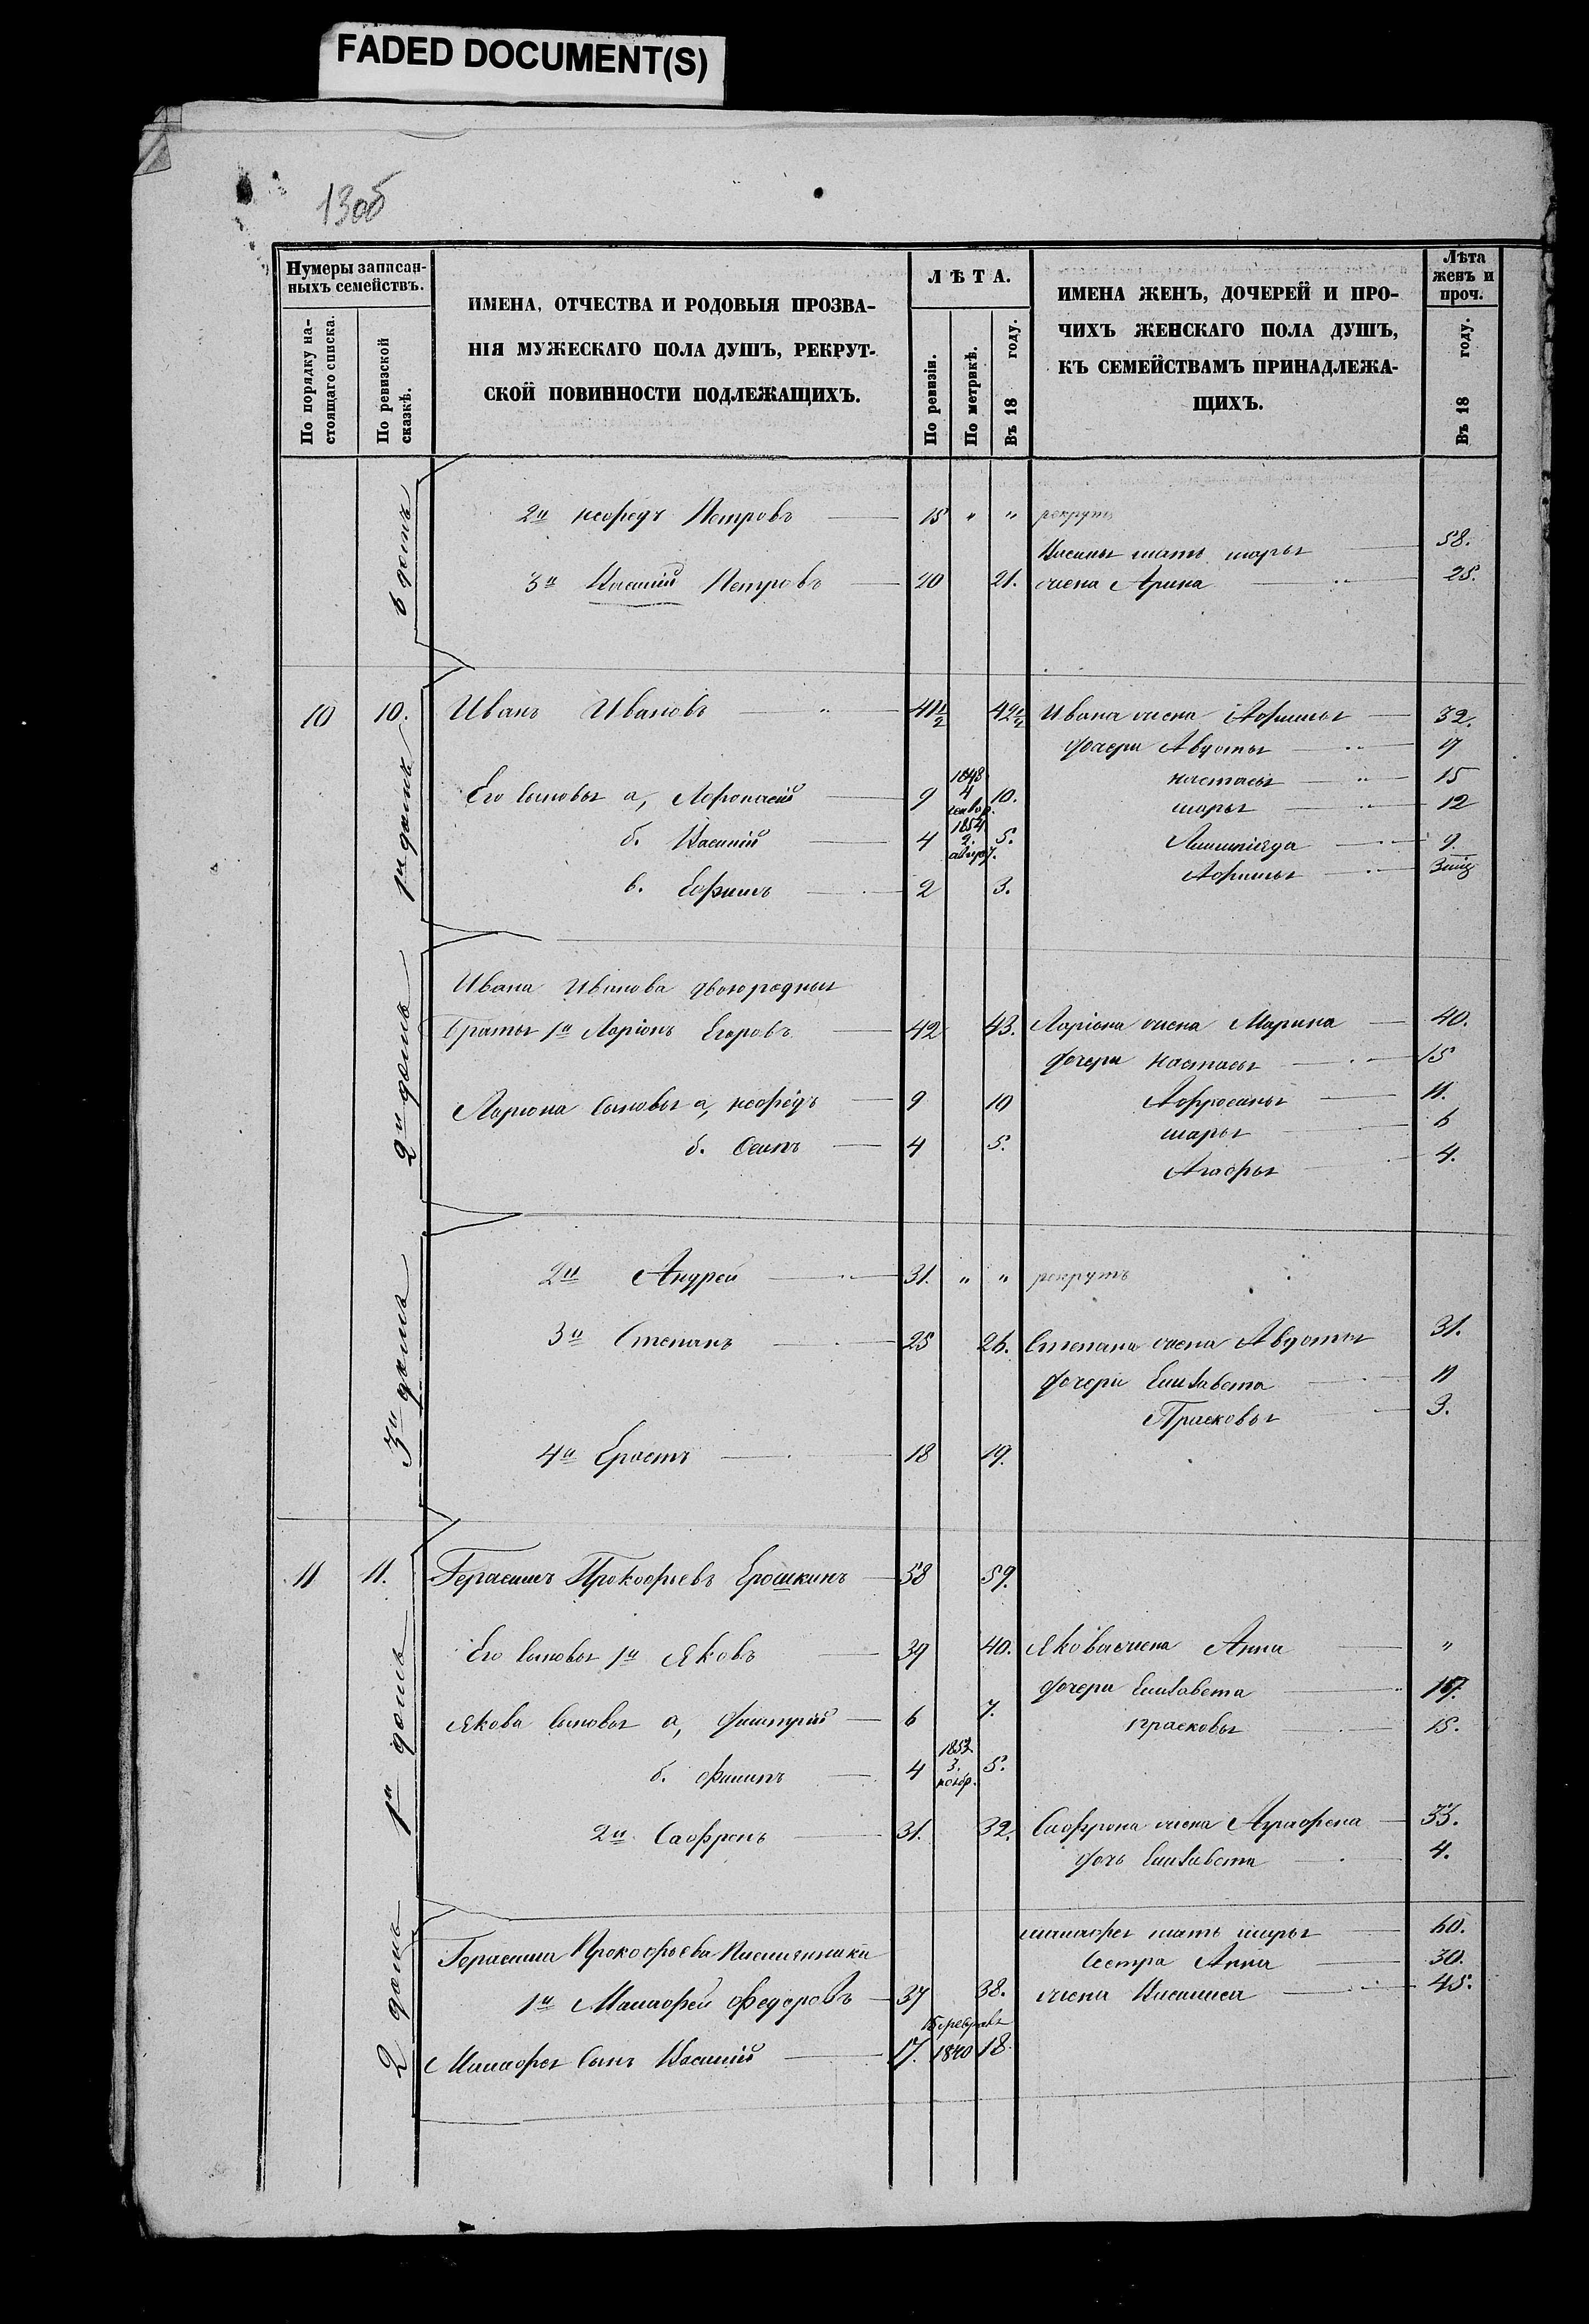 FADED DOCUMENT(S)
13об
Нумеры записан-
ныхъ семействъ.
По порядку на-
стоящаго списка.
По ревизской
сказкѣ.
ИМЕНА, ОТЧЕСТВА И РОДОВЫЯ ПРОЗВА-
НІЯ МУЖЕСКАГО ПОЛА ДУШЪ, РЕКРУТ-
СКОЙ ПОВИННОСТИ ПОДЛЕЖАЩИХЪ.
ЛѢТА.
По ревизіи.
По метрикѣ.
Въ 18 году.
ИМЕНА ЖЕНЪ, ДОЧЕРЕЙ И ПРО-
ЧИХЪ ЖЕНСКАГО ПОЛА ДУШЪ,
КЪ СЕМЕЙСТВАМЪ ПРИНАДЛЕЖА-
ЩИХЪ.
Лѣта
женъ и
проч.
Въ 18 году.
2й Неофедъ Петровъ 15 " " рекрутъ
мать Марья 58.
3й Василий Петровъ 20 21. жена Арина 25.
10 10. 1й домъ
Иванъ Ивановъ 41½ 42½ Ивана жена Афимья 32.
дочери Авдотья 17
Настасья 15
Его сыновья а, Афонасий 9 1848 4 генвар. 10. Марья 12
б. Василий 4 1854 2. 5. 9.
в. Ефимъ 2 3. Афимья 3 миц
2й домъ
Ивана Иванова двоюродныя
братья 1й Ларіонъ Егоровъ 42 43. Ларіона жена Марина 40.
дочери Настасья 15
Лариона сыновья а, Неофедъ 9 10 Афросинья 11.
Марья 6
б. Осипъ 4 5. Агафья 4.
3й домъ
2й Андрей 31. " " рекрутъ
3й Степанъ 25 26. Степана жена Авдотья 31.
дочери Елизавета 11
Прасковья 3.
4й Ерастъ 18 19.
11 11. 1й домъ
Герасимъ Прокофьевъ Ерошкинъ 58 59.
Его сыновья 1й Яковъ 39 40. Якова жена Анна "
дочери Елизавета 17.
Якова сыновья а, Дмитрий 6 7. Прасковья 15.
б. Филипъ 4 1852 3. ноябр. 5.
2й Сафронъ 31. 32. Сафрона жена Аграфена 33.
дочь Елизавета 4.
2 домъ
Мать Марья 60.
Герасима Прокофьева племянники
сестра Анна 30.
1й Малафей Федоровъ 37 38. жена Василиса 45.
Малафея сынъ Василий 17. февраля 1840 18.